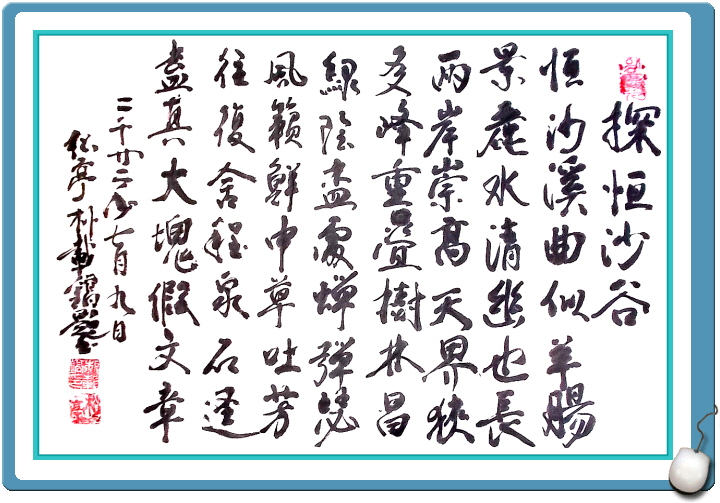 探恒沙谷
恒沙溪曲似羊腸
景麗水清幽也長
兩岸崇高天界狹
多峰重疊樹林昌
綠陰盡處蟬彈瑟
風籟鮮中草吐芳
往復舍程泉石逕
盡真大塊假文章
二千廿二年七月九日
松亭朴載